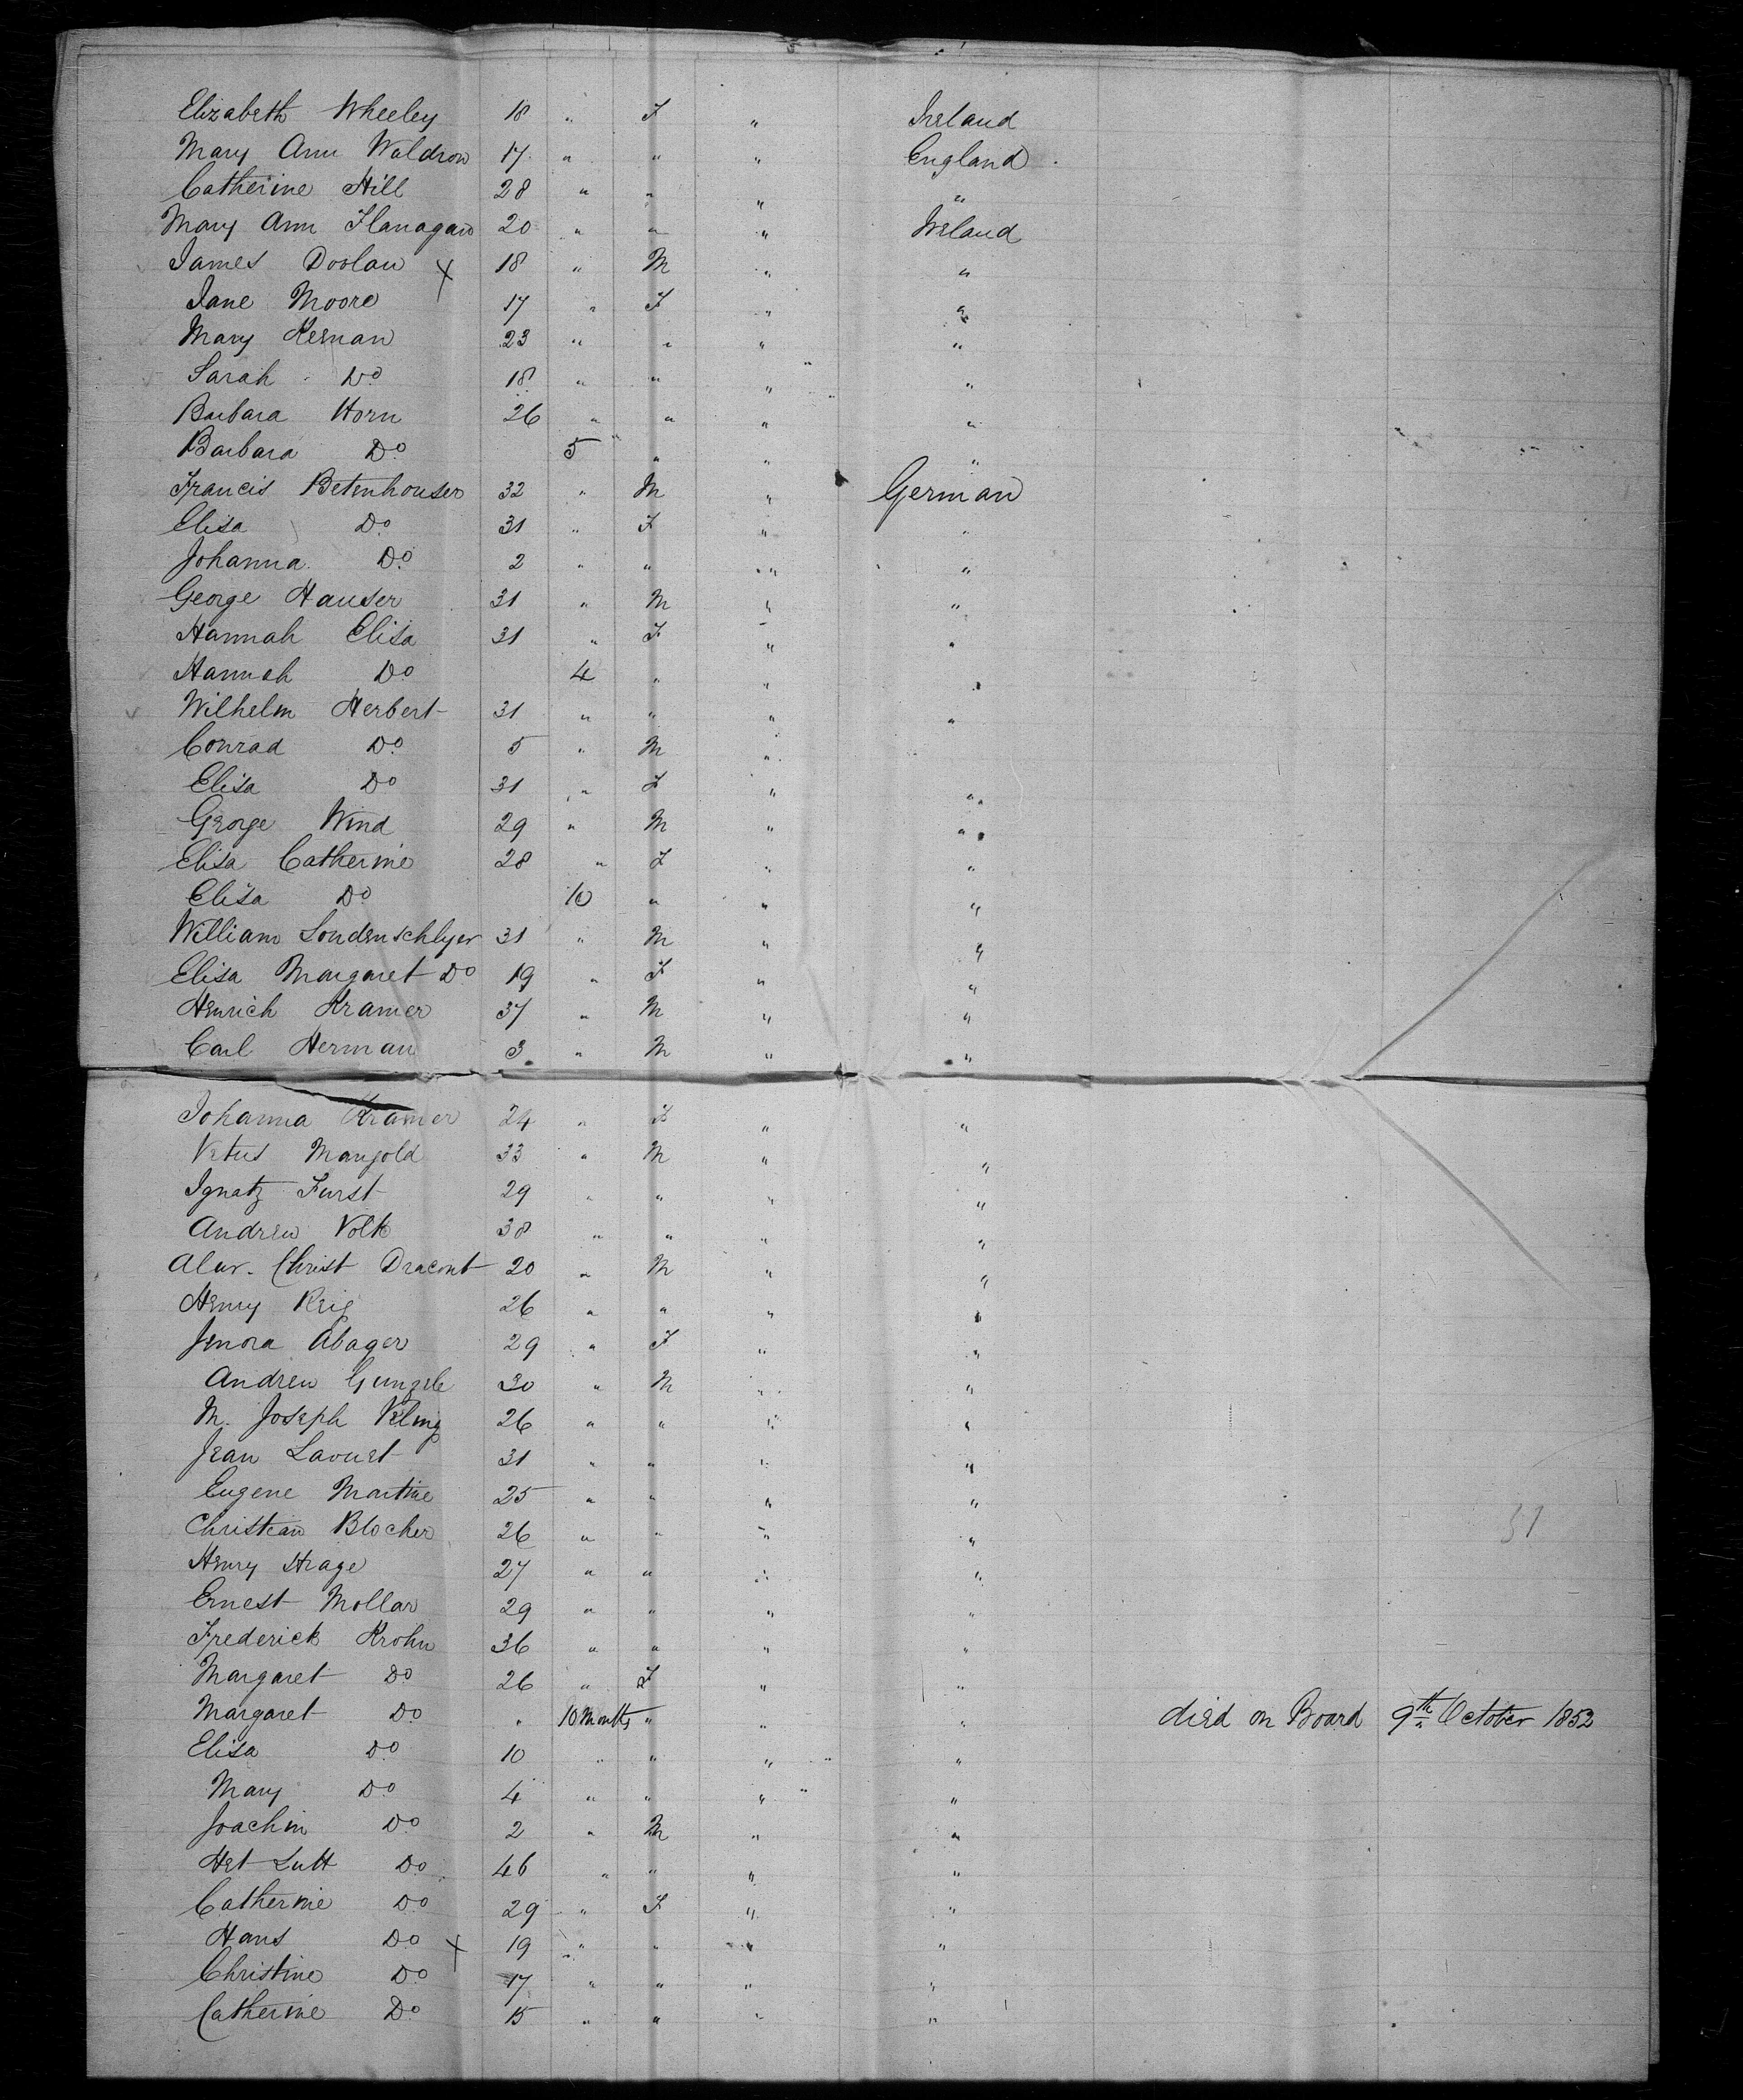 Elizabeth Wheeley 18 " F " Ireland
Mary Ann Waldron 17 " " " England
Catherine Hill 28 " " " "
Mary Ann Flanagan 20 " " " Ireland
James Doolan x 18 " M " "
Jane Moore 17 " F " "
Mary Kernan 23 " " " "
Sarah Do 18 " " " "
Barbara Horn 26 " " " "
Barbara Do 5 " " "
Francis Betenhouser 32 " M " German
Elisa Do 31 " F " "
Johanna Do 2 " " " "
George Hauser 31 " M " "
Hannah Elisa 31 " F " "
Hannah Do 4 " " "
Wilhelm Herbert 31 " " " "
Conrad Do 5 " M "
Elisa Do 31 " F " "
George Wind 29 " M " "
Elisa Catherine 28 " F " "
Elisa Do 10 " " "
William Londenschlyer 31 " M " "
Elisa Margaret Do 19 " F " "
Henrich Kramer 37 " M " "
Carl Herman 3 " M " "
Johanna Kramer 24 " F " "
Vetus Mangold 33 " M " "
Ignatz Furst 29 " " " "
Andrew Volk 38 " " " "
Christ Dracont 20 " M " "
Henry Reig 26 " " " "
Abager 29 " F " "
Andrew 30 " M " "
M. Joseph 26 " " " "
Jean Lavuet 31 " " " "
Eugene Martine 25 " " " "
Christean Blocher 26 " " " "
31
Henry Hrage 27 " " " "
Ernest Mollar 29 " " " "
Frederick Krohn 36 " " " "
Margaret Do 26 " F " "
Margaret Do " 10 Months " " " died on Board 9th October 1852
Elisa Do 10 " " " "
Mary Do 4 " " " "
Joachim Do 2 " M " "
Het Lutt Do 46 " " " "
Catherine Do 29 " F " "
Hans Do x 19 " " " "
Christine Do 17 " " " "
Catherine Do 15 " " " "